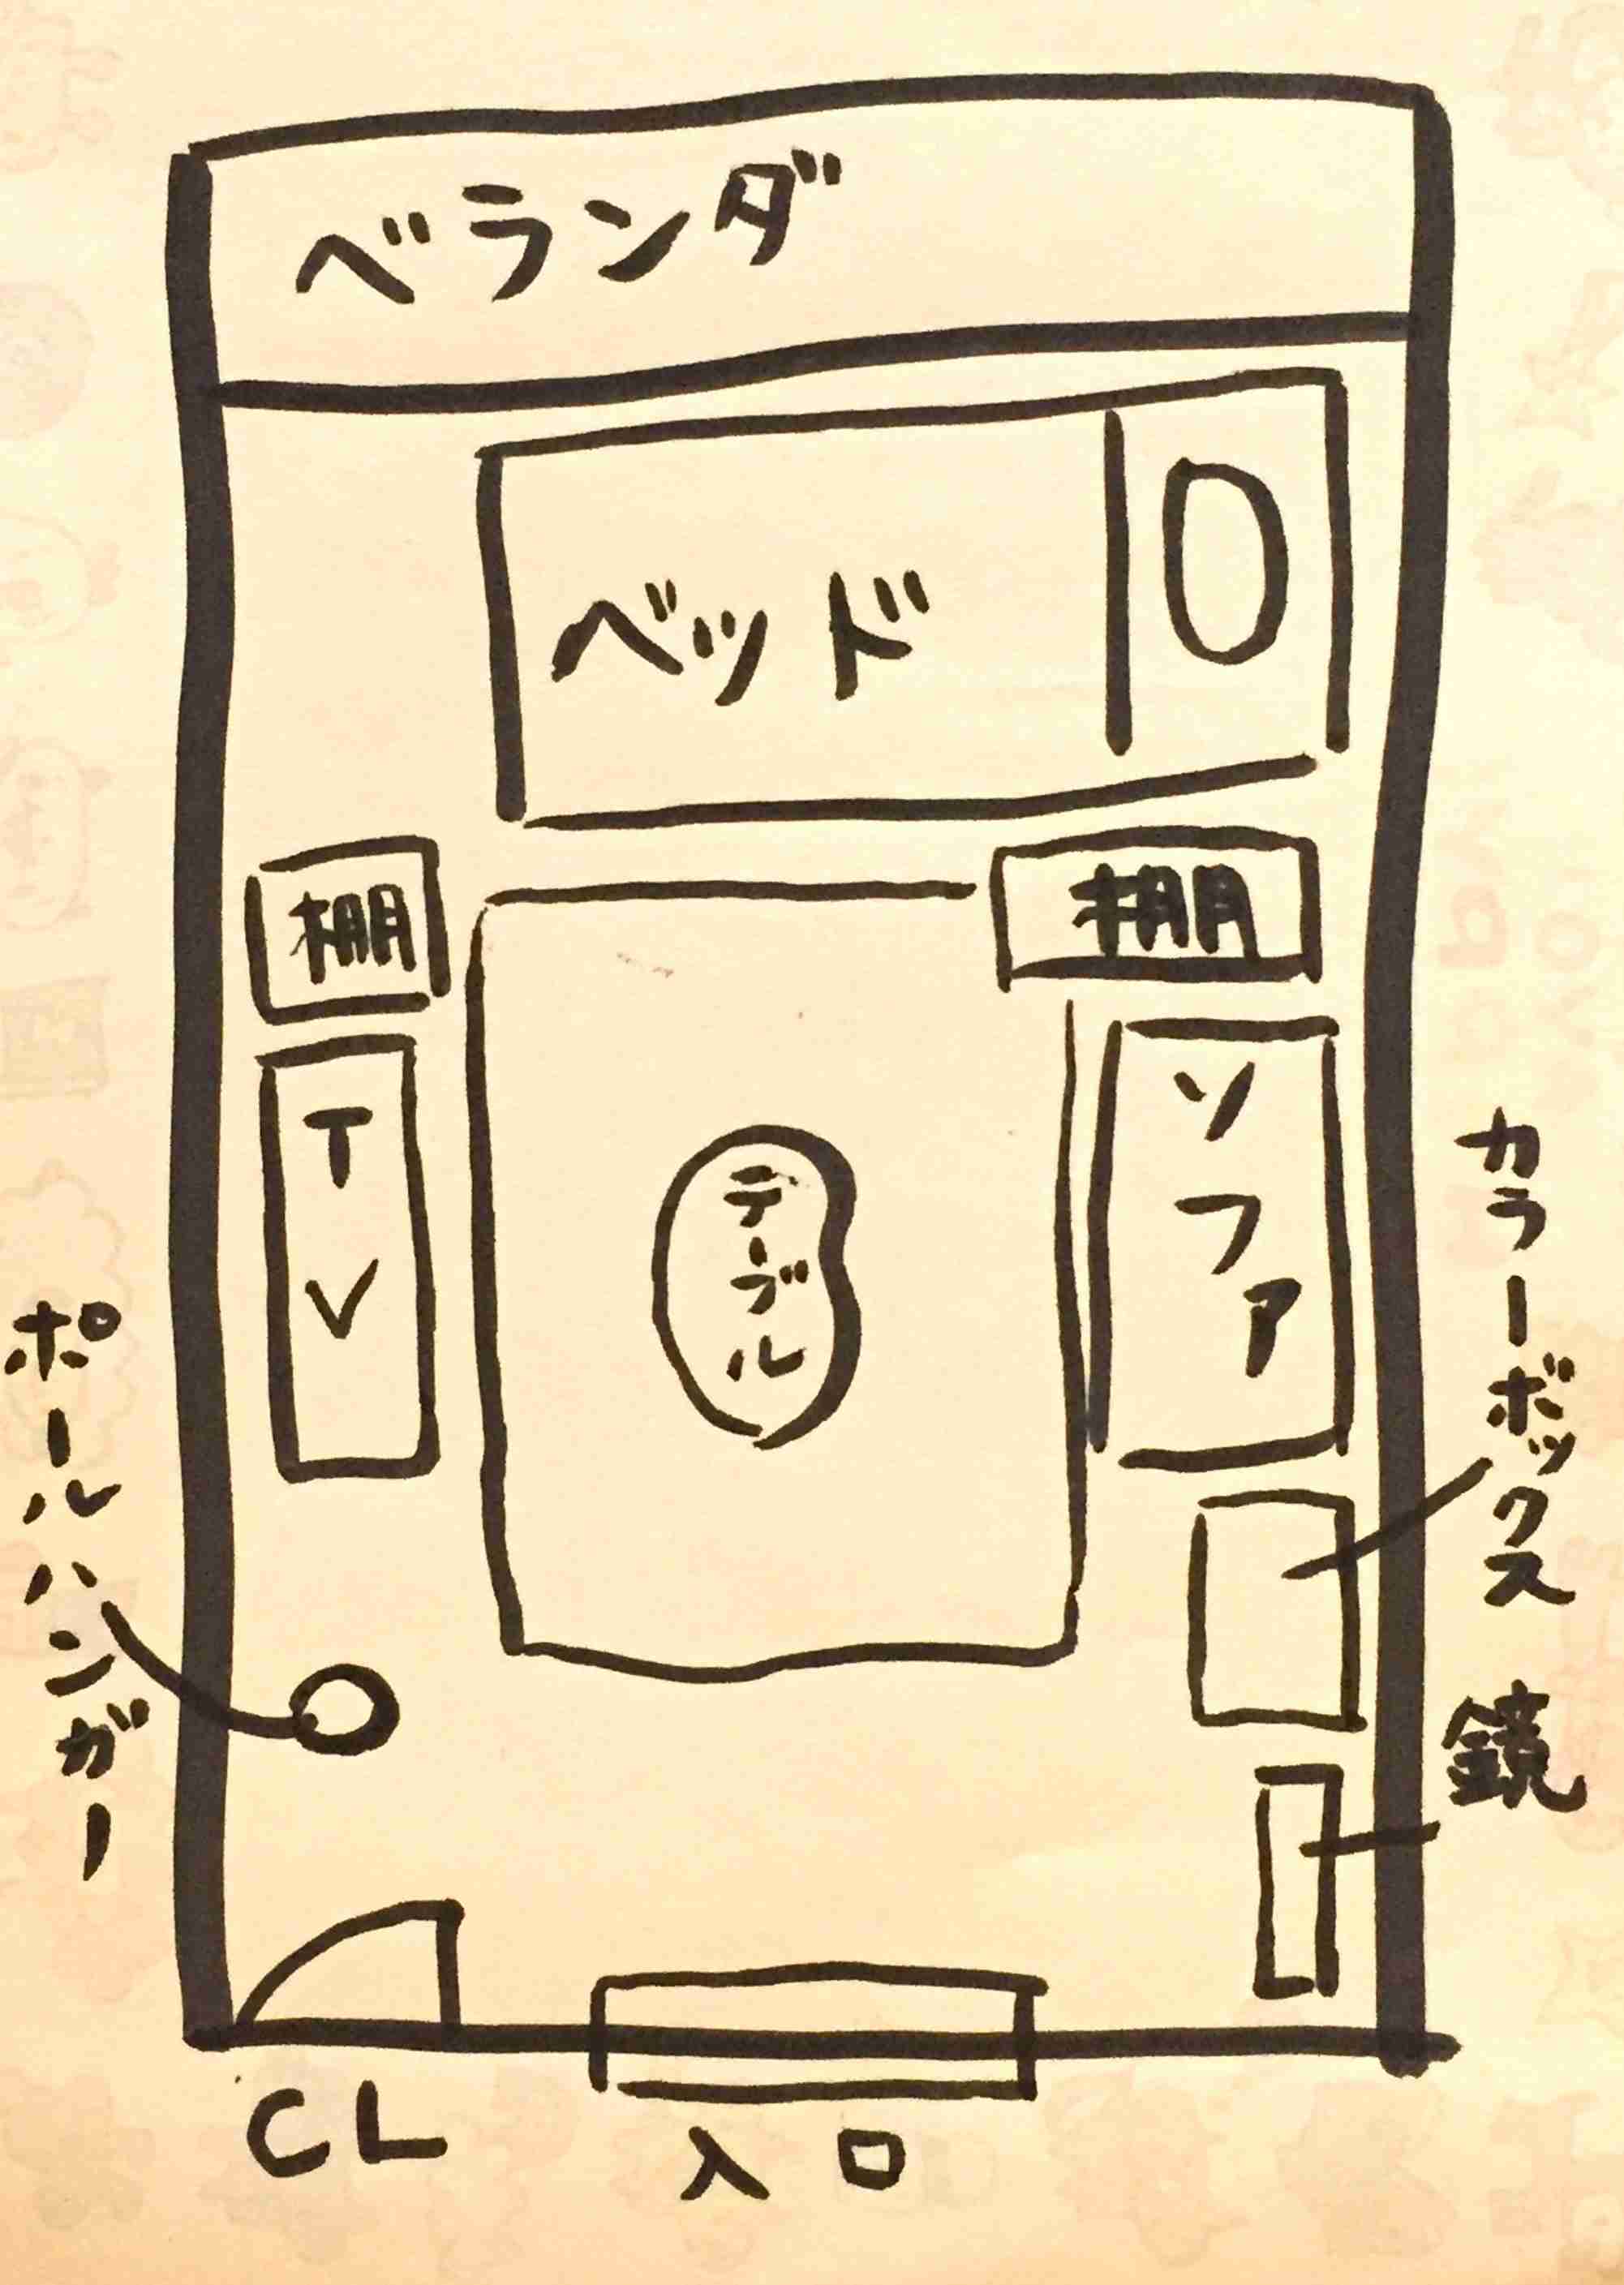 ベランダ
ベッド
棚
棚
TV
ソファ
テーブル
カラーボックス
ポールハンガー
鏡
CL
入口